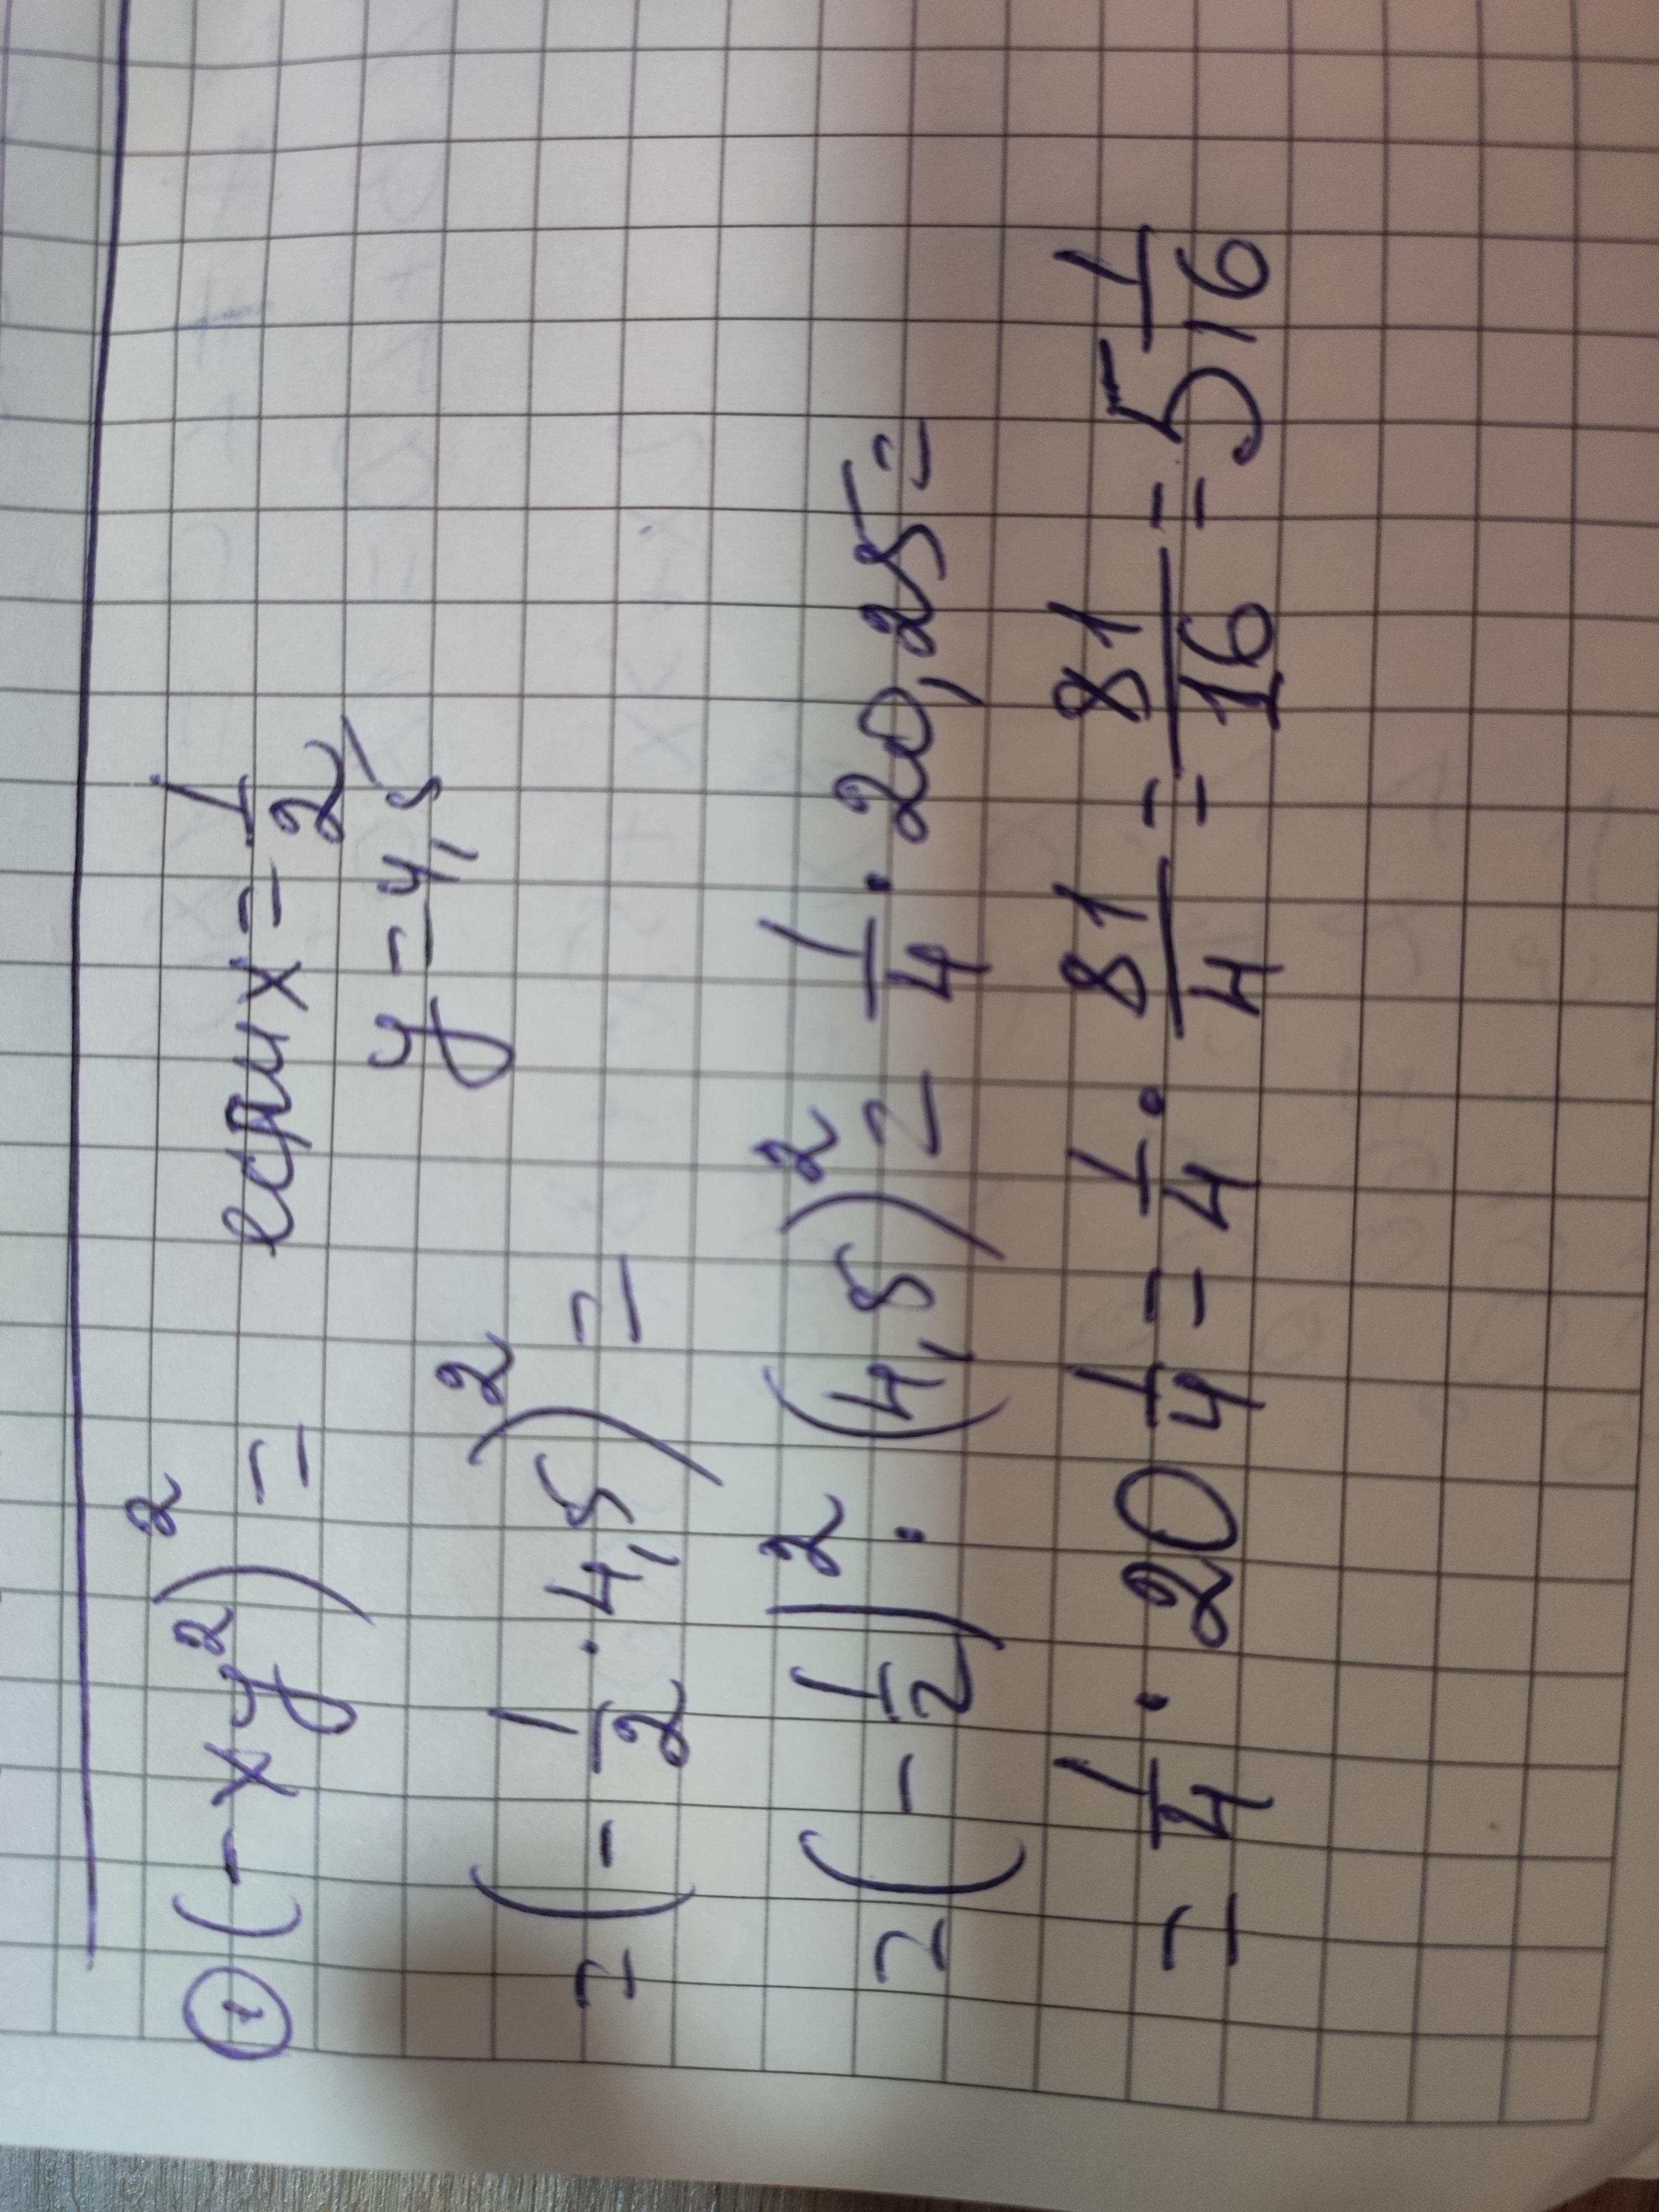 ① (-xy²)² = если x = 1/2,
y = 4,5
= (- 1/2 · 4,5)² =
= (- 1/2)² · (4,5)² = 1/4 · 20,25 =
= 1/4 · 20 1/4 = 1/4 · 81/4 = 81/16 = 5 1/16